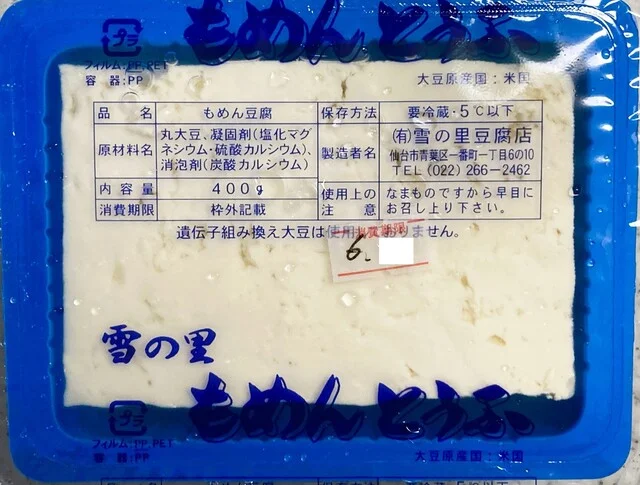 もめんとうふ
プラ
フィルム:PP,PET
容器:PP
大豆原産国:米国
品名 もめん豆腐
原材料名 丸大豆、凝固剤(塩化マグ
ネシウム・硫酸カルシウム)、
消泡剤(炭酸カルシウム)
内容量 400g
消費期限 枠外記載
保存方法 要冷蔵・5℃以下
製造者名 (有)雪の里豆腐店
仙台市青葉区一番町一丁目6の10
TEL(022)266-2462
使用上の注意 なまものですから早目に
お召し上り下さい。
遺伝子組み換え大豆は使用しておりません。
6.
雪の里
もめんとうふ
プラ
フィルム:PP,PET
容器:PP
大豆原産国:米国